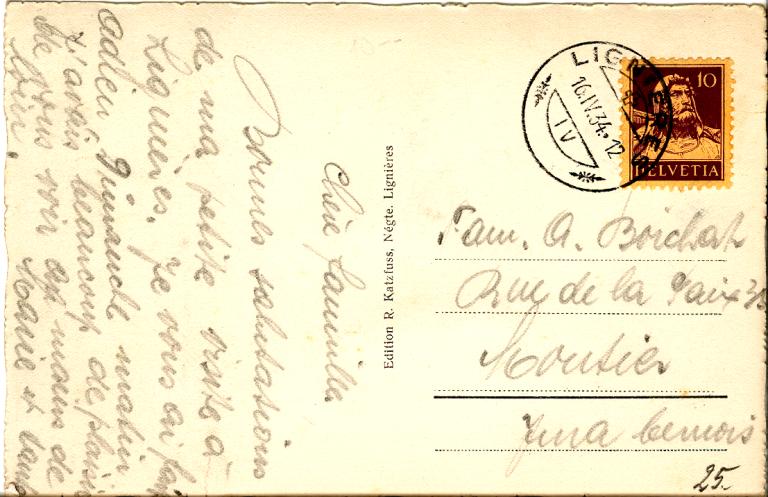 Chère famille
Bonnes salutations
de ma petite visite à
Lignières. Je vous ai fait
adieu Dimanche matin
J'avais beaucoup de plaisir
De vous voir au moins de
loin. Marie et
Edition R. Katzfuss, Négte. Lignières
LIGNIERES
16.IV.34.12
IV
10
HELVETIA
Fam. A. Boichat
Rue de la Paix
Moutier
Jura bernois
25.-